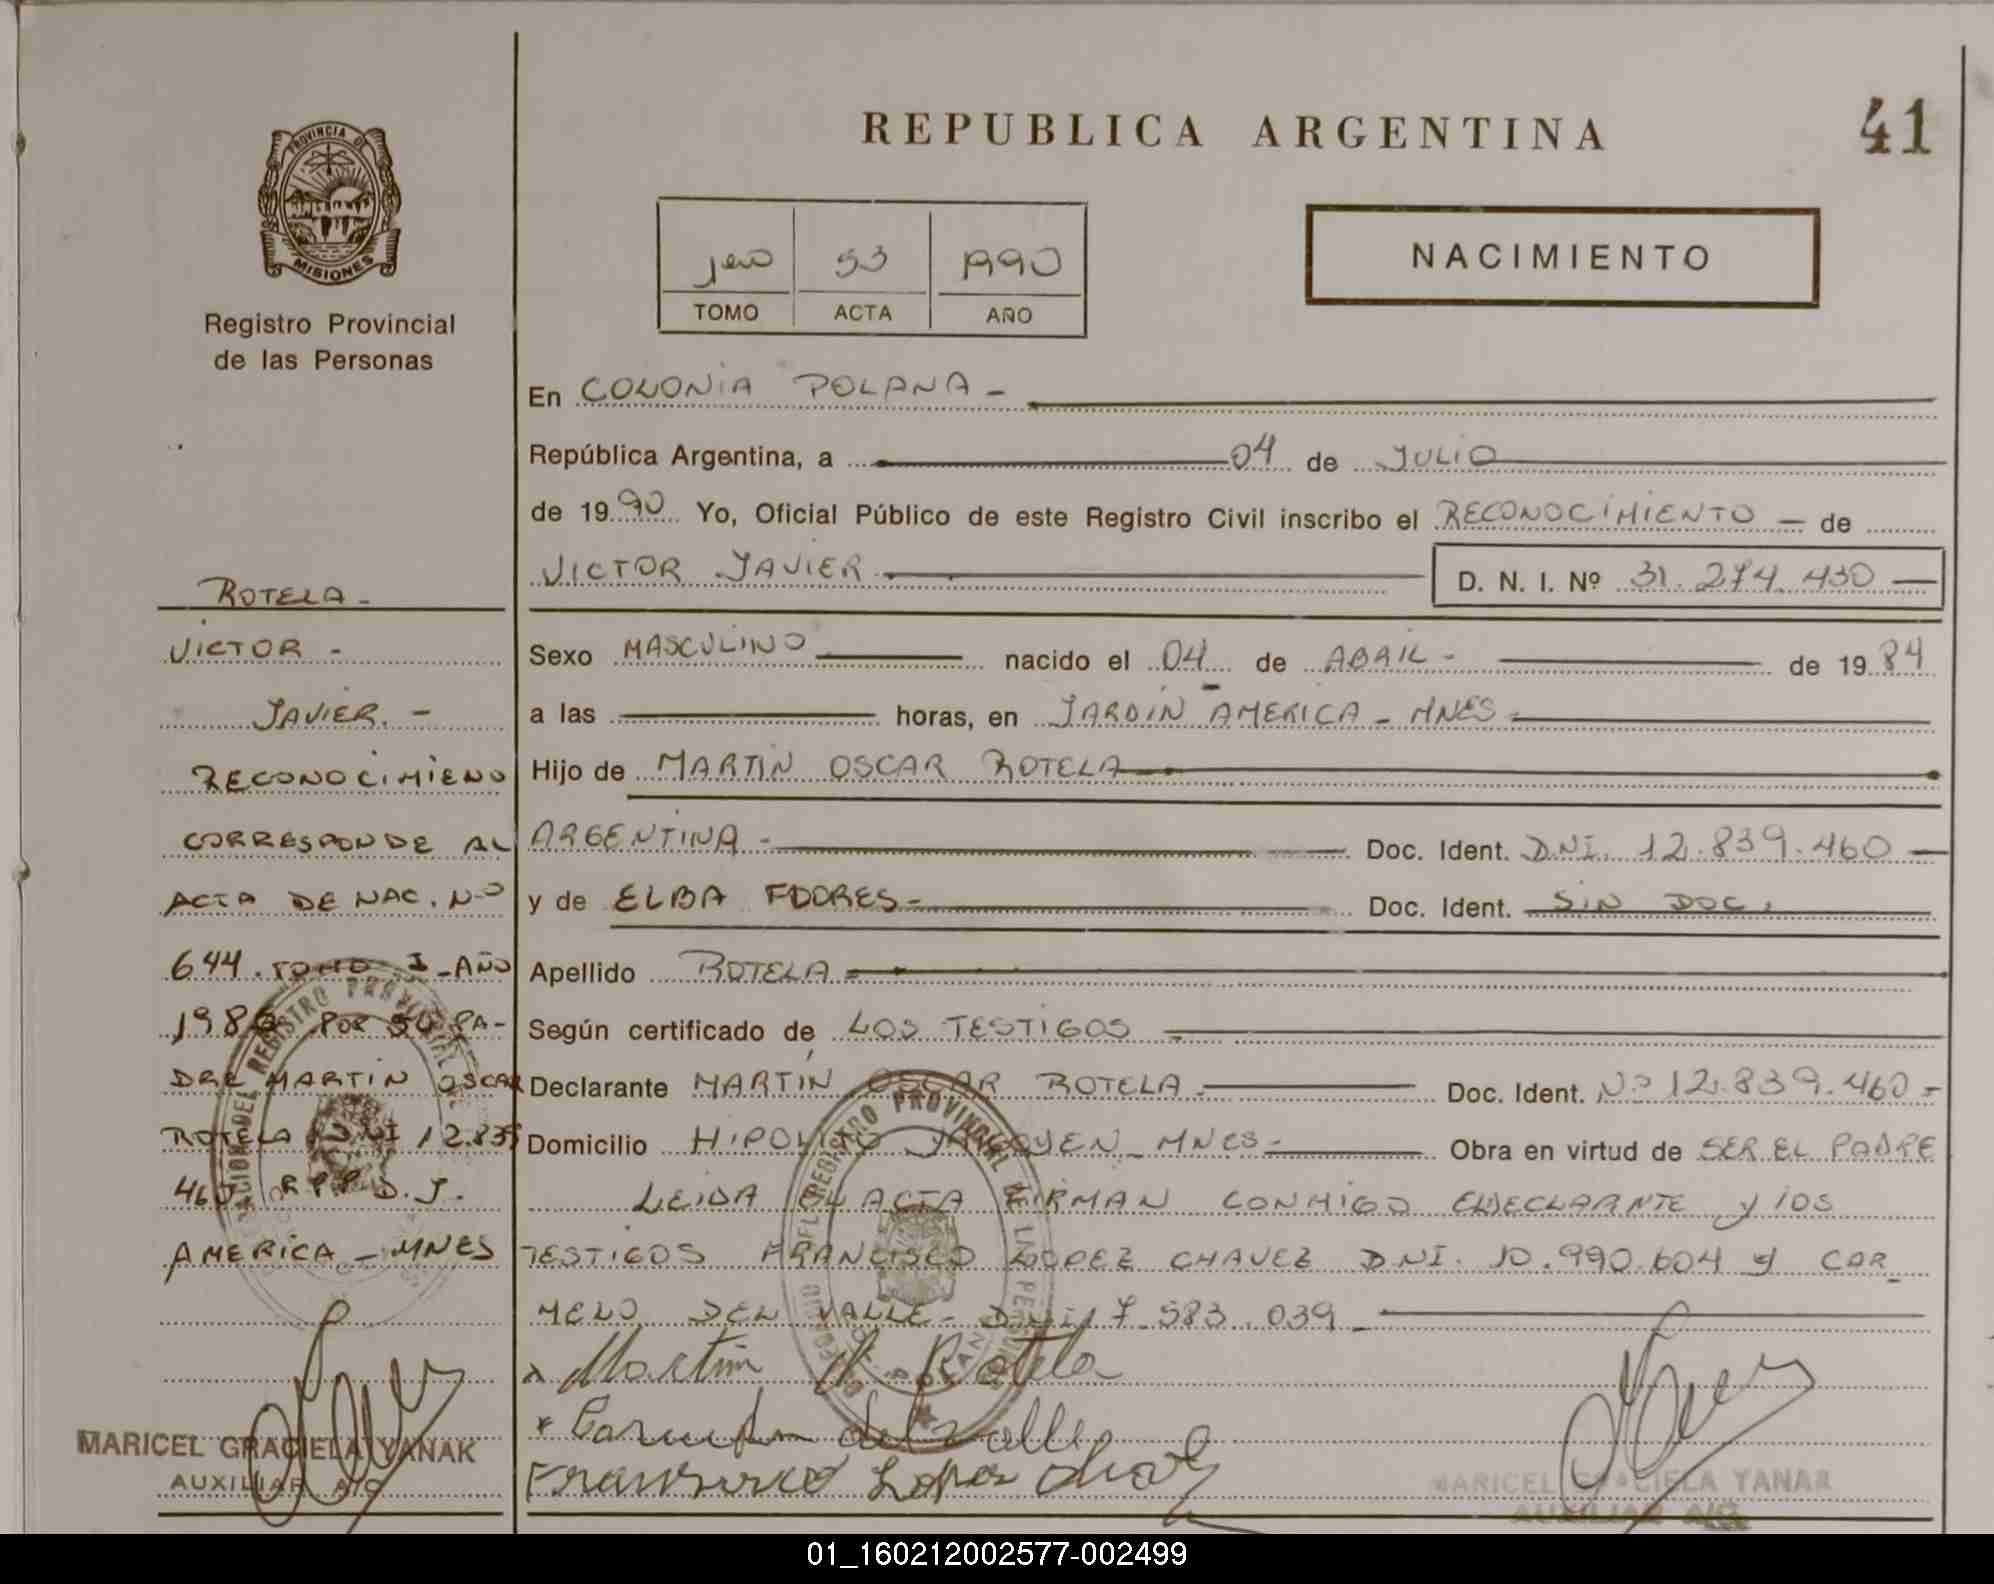 REPUBLICA ARGENTINA
41
PROVINCIA DE
MISIONES
Registro Provincial
de las Personas
53 1990
TOMO ACTA AÑO
NACIMIENTO
En COLONIA POLANA -
República Argentina, a 04 de JULIO
de 1990 Yo, Oficial Público de este Registro Civil inscribo el RECONOCIMIENTO - de
VICTOR JAVIER D. N. I. Nº 31.274.430
Sexo MASCULINO nacido el 04 de ABRIL - de 1984
a las horas, en JARDIN AMERICA - MNES -
Hijo de MARTIN OSCAR ROTELA
ARGENTINA - Doc. Ident. DNI. 12.839.460
y de ELBA FLORES - Doc. Ident. SIN DOC.
Apellido ROTELA
Según certificado de LOS TESTIGOS
Declarante MARTIN OSCAR ROTELA Doc. Ident. Nº 12.839.460 -
Domicilio HIPOLITO YRIGOYEN - MNES - Obra en virtud de SER EL PADRE
LEIDA EL ACTA FIRMAN CONMIGO EL DECLARANTE y LOS
TESTIGOS FRANCISCO LOPEZ CHAVEZ DNI. 10.990.604 y CAR
MELO DEL VALLE - DNI 7.583.039 -
Martin Rotela
del Valle
Francisco Lopez
ROTELA -
VICTOR -
JAVIER. -
RECONOCIMIENO
CORRESPONDE AL
ACTA DE NAC. Nº
644. TOMO I - AÑO
1986 POR SU PA-
DRE MARTIN OSCAR
ROTELA DNI 12.839
460 R.P.P. D. J.
AMERICA - MNES
MARICEL GRACIELA YANAK
AUXILIAR A/C
MARICEL GRACIELA YANAK
AUXILIAR A/C
01_160212002577-002499